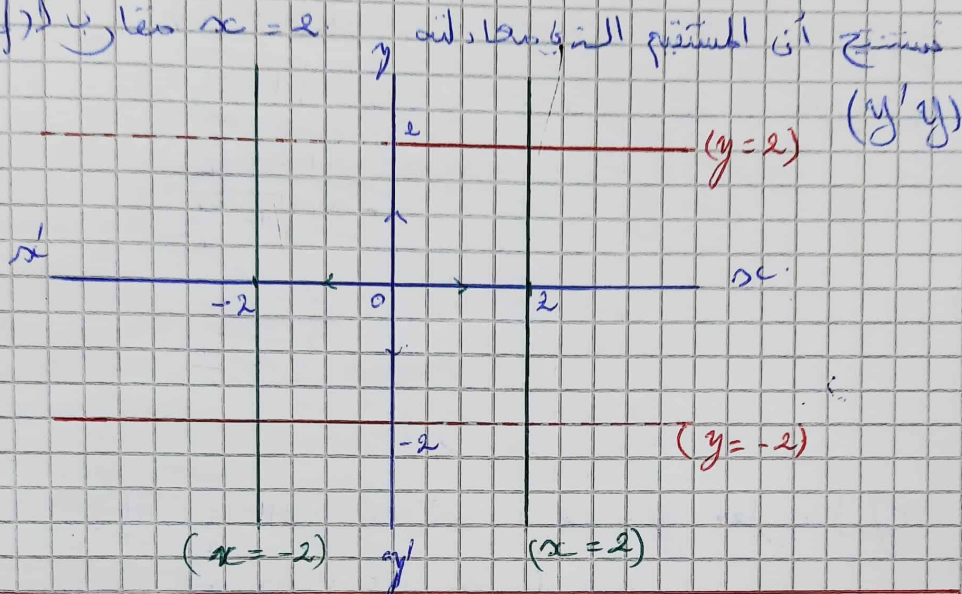 نستنتج أن المستقيم الذي معادلته x = 2 مقارب لـ
(y'y)
y
2
(y = 2)
x'
-2
0
2
x
-2
(y = -2)
(x = -2)
y'
(x = 2)